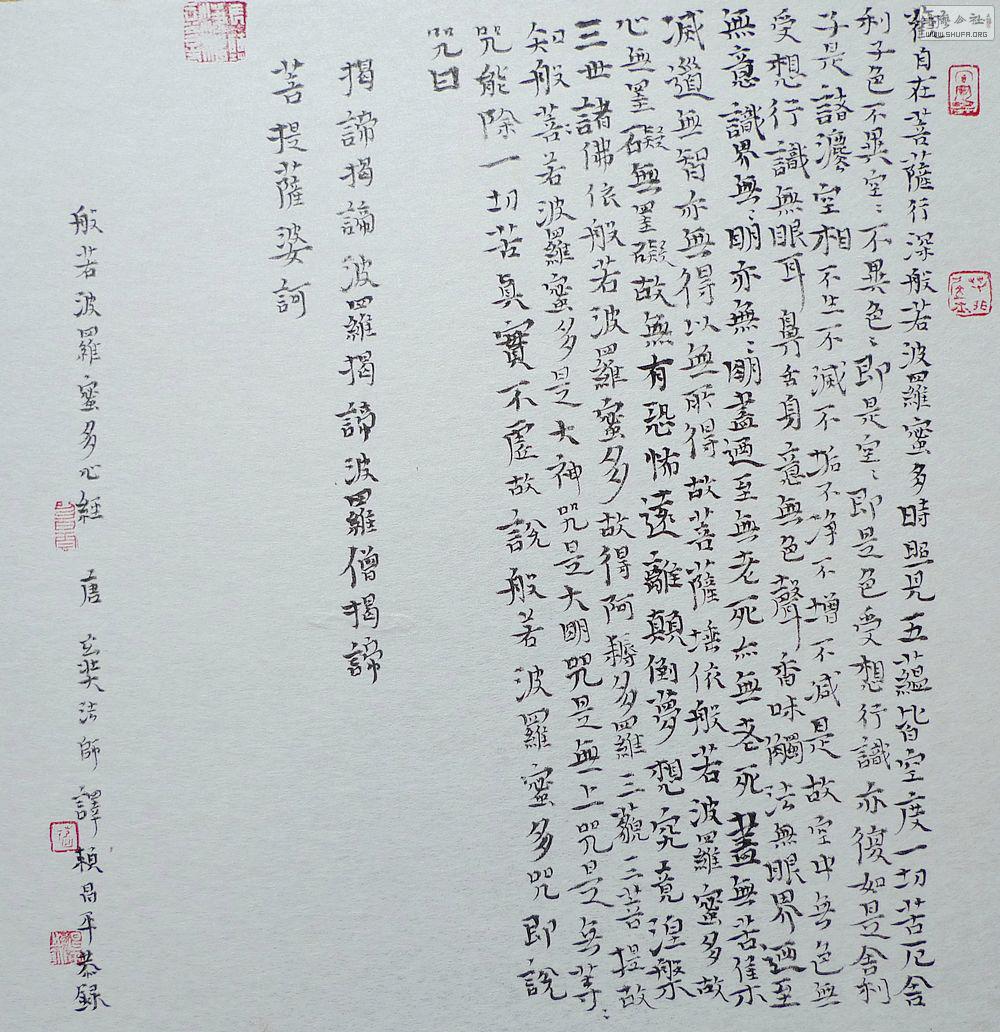 觀自在菩薩行深般若波羅蜜多時照見五蘊皆空度一切苦厄舍
利子色不異空〻不異色〻即是空〻即是色受想行識亦復如是舍利
子是諸灋空相不生不滅不垢不淨不增不減是故空中無色無
受想行識無眼耳鼻舌身意無色聲香味觸法無眼界迺至
無意識界無〻明亦無〻明盡迺至無老死亦無老死盡無苦集
滅道無智亦無得以無所得故菩薩埵依般若波羅蜜多故
心無罣礙無罣礙故無有恐怖遠離顛倒夢想究竟涅槃
三世諸佛依般若波羅蜜多故得阿耨多羅三藐三菩提故
知般菩若波羅蜜多是大神咒是大明咒是無上咒是無等〻
咒能除一切苦真實不虛故說般若波羅蜜多咒即說
咒曰
揭諦揭諦波羅揭諦波羅僧揭諦
菩提薩婆訶
般若波羅蜜多心經 唐玄奘法師譯 賴昌平恭録
WWW.SHUFA.ORG